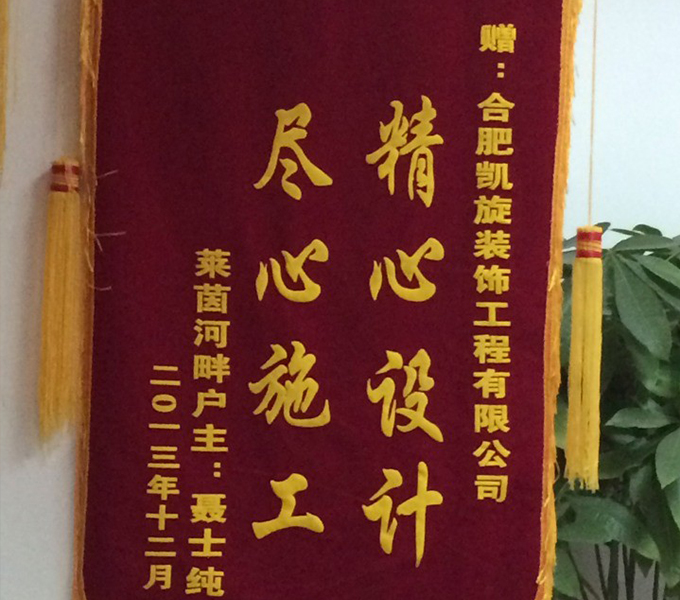 赠：合肥凯旋装饰工程有限公司
精心设计
尽心施工
莱茵河畔户主：聂士纯
二0一三年十二月